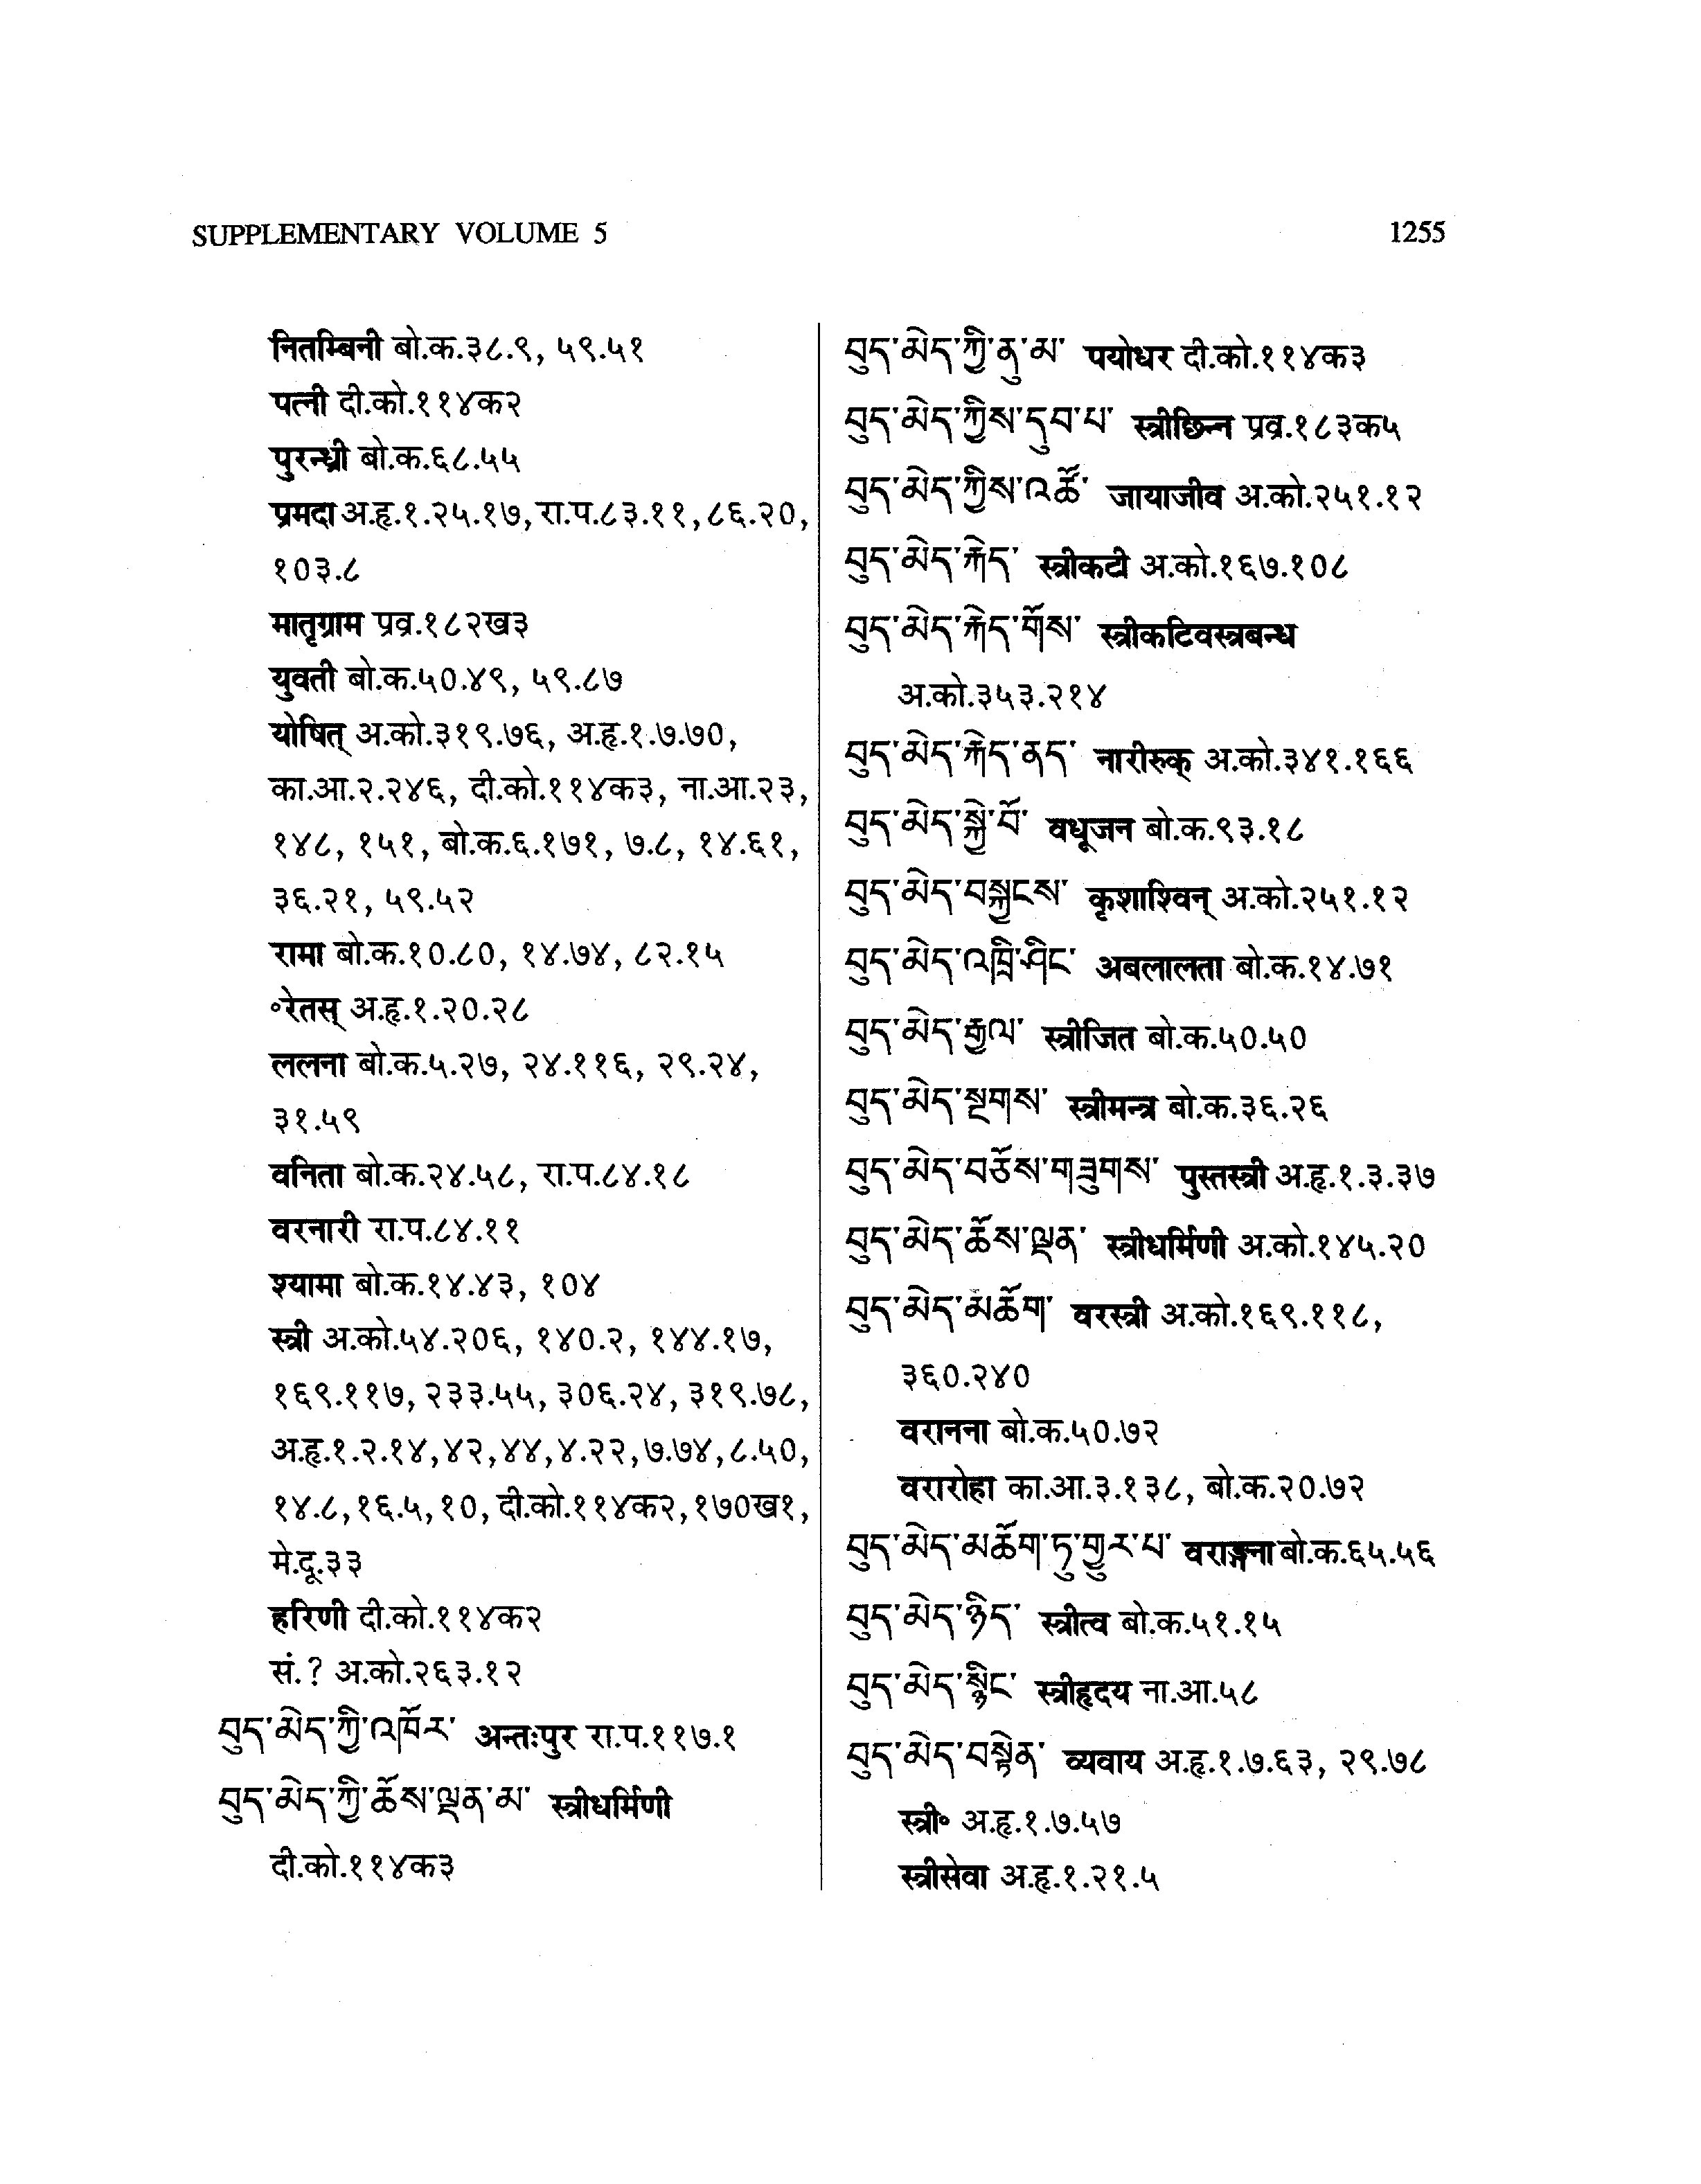 SUPPLEMENTARY VOLUME 5 1255
नितम्बिनी बो.क.३८.९, ५९.५१
पत्नी दी.को.११४क२
पुरन्ध्री बो.क.६८.५५
प्रमदा अ.हृ.१.२५.१७, रा.प.८३.११, ८६.२०,
१०३.८
मातृग्राम प्रव्र.१८२ख३
युवती बो.क.५०.४९, ५९.८७
योषित् अ.को.३१९.७६, अ.हृ.१.७.७०,
का.आ.२.२४६, दी.को.११४क३, ना.आ.२३,
१४८, १५१, बो.क.६.१७१, ७.८, १४.६१,
३६.२१, ५९.५२
रामा बो.क.१०.८०, १४.७४, ८२.१५
॰रेतस् अ.हृ.१.२०.२८
ललना बो.क.५.२७, २४.११६, २९.२४,
३१.५९
वनिता बो.क.२४.५८, रा.प.८४.१८
वरनारी रा.प.८४.११
श्यामा बो.क.१४.४३, १०४
स्त्री अ.को.५४.२०६, १४०.२, १४४.१७,
१६९.११७, २३३.५५, ३०६.२४, ३१९.७८,
अ.हृ.१.२.१४, ४२, ४४, ४.२२, ७.७४, ८.५०,
१४.८, १६.५, १०, दी.को.११४क२, १७०ख१,
मे.दू.३३
हरिणी दी.को.११४क२
सं.? अ.को.२६३.१२
བུད་མེད་ཀྱི་འཁོར་ अन्तःपुर रा.प.११७.१
བུད་མེད་ཀྱི་ཆོས་ལྡན་མ་ स्त्रीधर्मिणी
दी.को.११४क३
བུད་མེད་ཀྱི་ནུ་མ་ पयोधर दी.को.११४क३
བུད་མེད་ཀྱིས་དུབ་པ་ स्त्रीछिन्न प्रव्र.१८३क५
བུད་མེད་ཀྱིས་འཚོ་ जायाजीव अ.को.२५१.१२
བུད་མེད་རྐེད་ स्त्रीकटी अ.को.१६७.१०८
བུད་མེད་རྐེད་གོས་ स्त्रीकटिवस्त्रबन्ध
अ.को.३५३.२१४
བུད་མེད་རྐེད་ནད་ नारीरुक् अ.को.३४१.१६६
བུད་མེད་སྐྱེ་བོ་ वधूजन बो.क.९३.१८
བུད་མེད་བསྐྱངས་ कृशाश्विन् अ.को.२५१.१२
བུད་མེད་འཁྲི་ཤིང་ अबलालता बो.क.१४.७१
བུད་མེད་རྒྱལ་ स्त्रीजित बो.क.५०.५०
བུད་མེད་སྔགས་ स्त्रीमन्त्र बो.क.३६.२६
བུད་མེད་བཅོས་གཟུགས་ पुस्तस्त्री अ.हृ.१.३.३७
བུད་མེད་ཆོས་ལྡན་ स्त्रीधर्मिणी अ.को.१४५.२०
བུད་མེད་མཆོག་ वरस्त्री अ.को.१६९.११८,
३६०.२४०
वरानना बो.क.५०.७२
वरारोहा का.आ.३.१३८, बो.क.२०.७२
བུད་མེད་མཆོག་ཏུ་གྱུར་པ་ वराङ्गना बो.क.६५.५६
བུད་མེད་ཉིད་ स्त्रीत्व बो.क.५१.१५
བུད་མེད་སྙིང་ स्त्रीहृदय ना.आ.५८
བུད་མེད་བསྟེན་ व्यवाय अ.हृ.१.७.६३, २९.७८
स्त्री॰ अ.हृ.१.७.५७
स्त्रीसेवा अ.हृ.१.२१.५